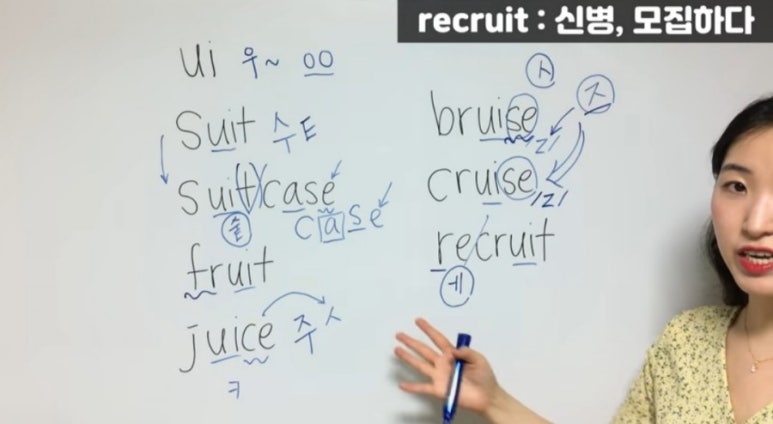 recruit : 신병, 모집하다
ui 우~ oo
suit 수E
suitcase
숱
case
fruit
juice 주스
ㅋ
ㅅ
ㅈ
bruise /z/
cruise /z/
recruit
ㅔ